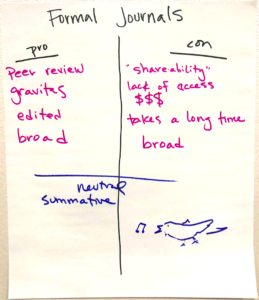 Formal Journals
pro
Peer review
gravitas
edited
broad
con
"shareability"
lack of access
$$$
takes a long time
broad
neutral
summative